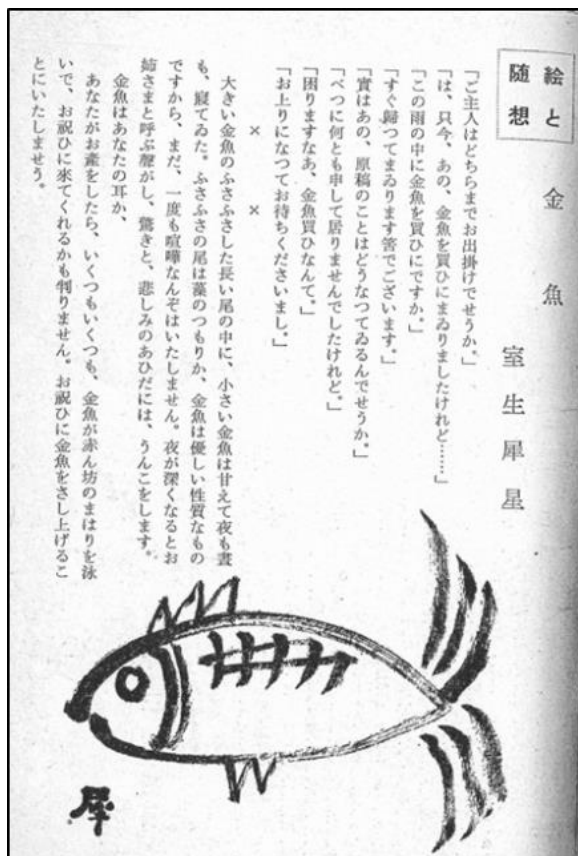 絵と
随想
金魚
室生犀星
「ご主人はどちらまでお出掛けでせうか。」
「は、只今、あの、金魚を買ひにまゐりましたけれど……」
「この雨の中に金魚を買ひにですか。」
「すぐ歸つてまゐります筈でございます。」
「實はあの、原稿のことはどうなつてゐるんでせうか。」
「べつに何とも申して居りませんでしたけれど。」
「困りますなあ、金魚買ひなんて。」
「お上りになつてお待ちくださいまし。」
× ×
大きい金魚のふさふさした長い尾の中に、小さい金魚は甘えて夜も晝
も、寢てゐた。ふさふさの尾は藻のつもりか、金魚は優しい性質なもの
ですから、まだ、一度も喧嘩なんぞはいたしません。夜が深くなるとお
姉さまと呼ぶ聲がし、驚きと、悲しみのあひだには、うんこをします。
金魚はあなたの耳か、
あなたがお產をしたら、いくつもいくつも、金魚が赤ん坊のまはりを泳
いで、お祝ひに來てくれるかも判りません。お祝ひに金魚をさし上げるこ
とにいたしませう。
犀